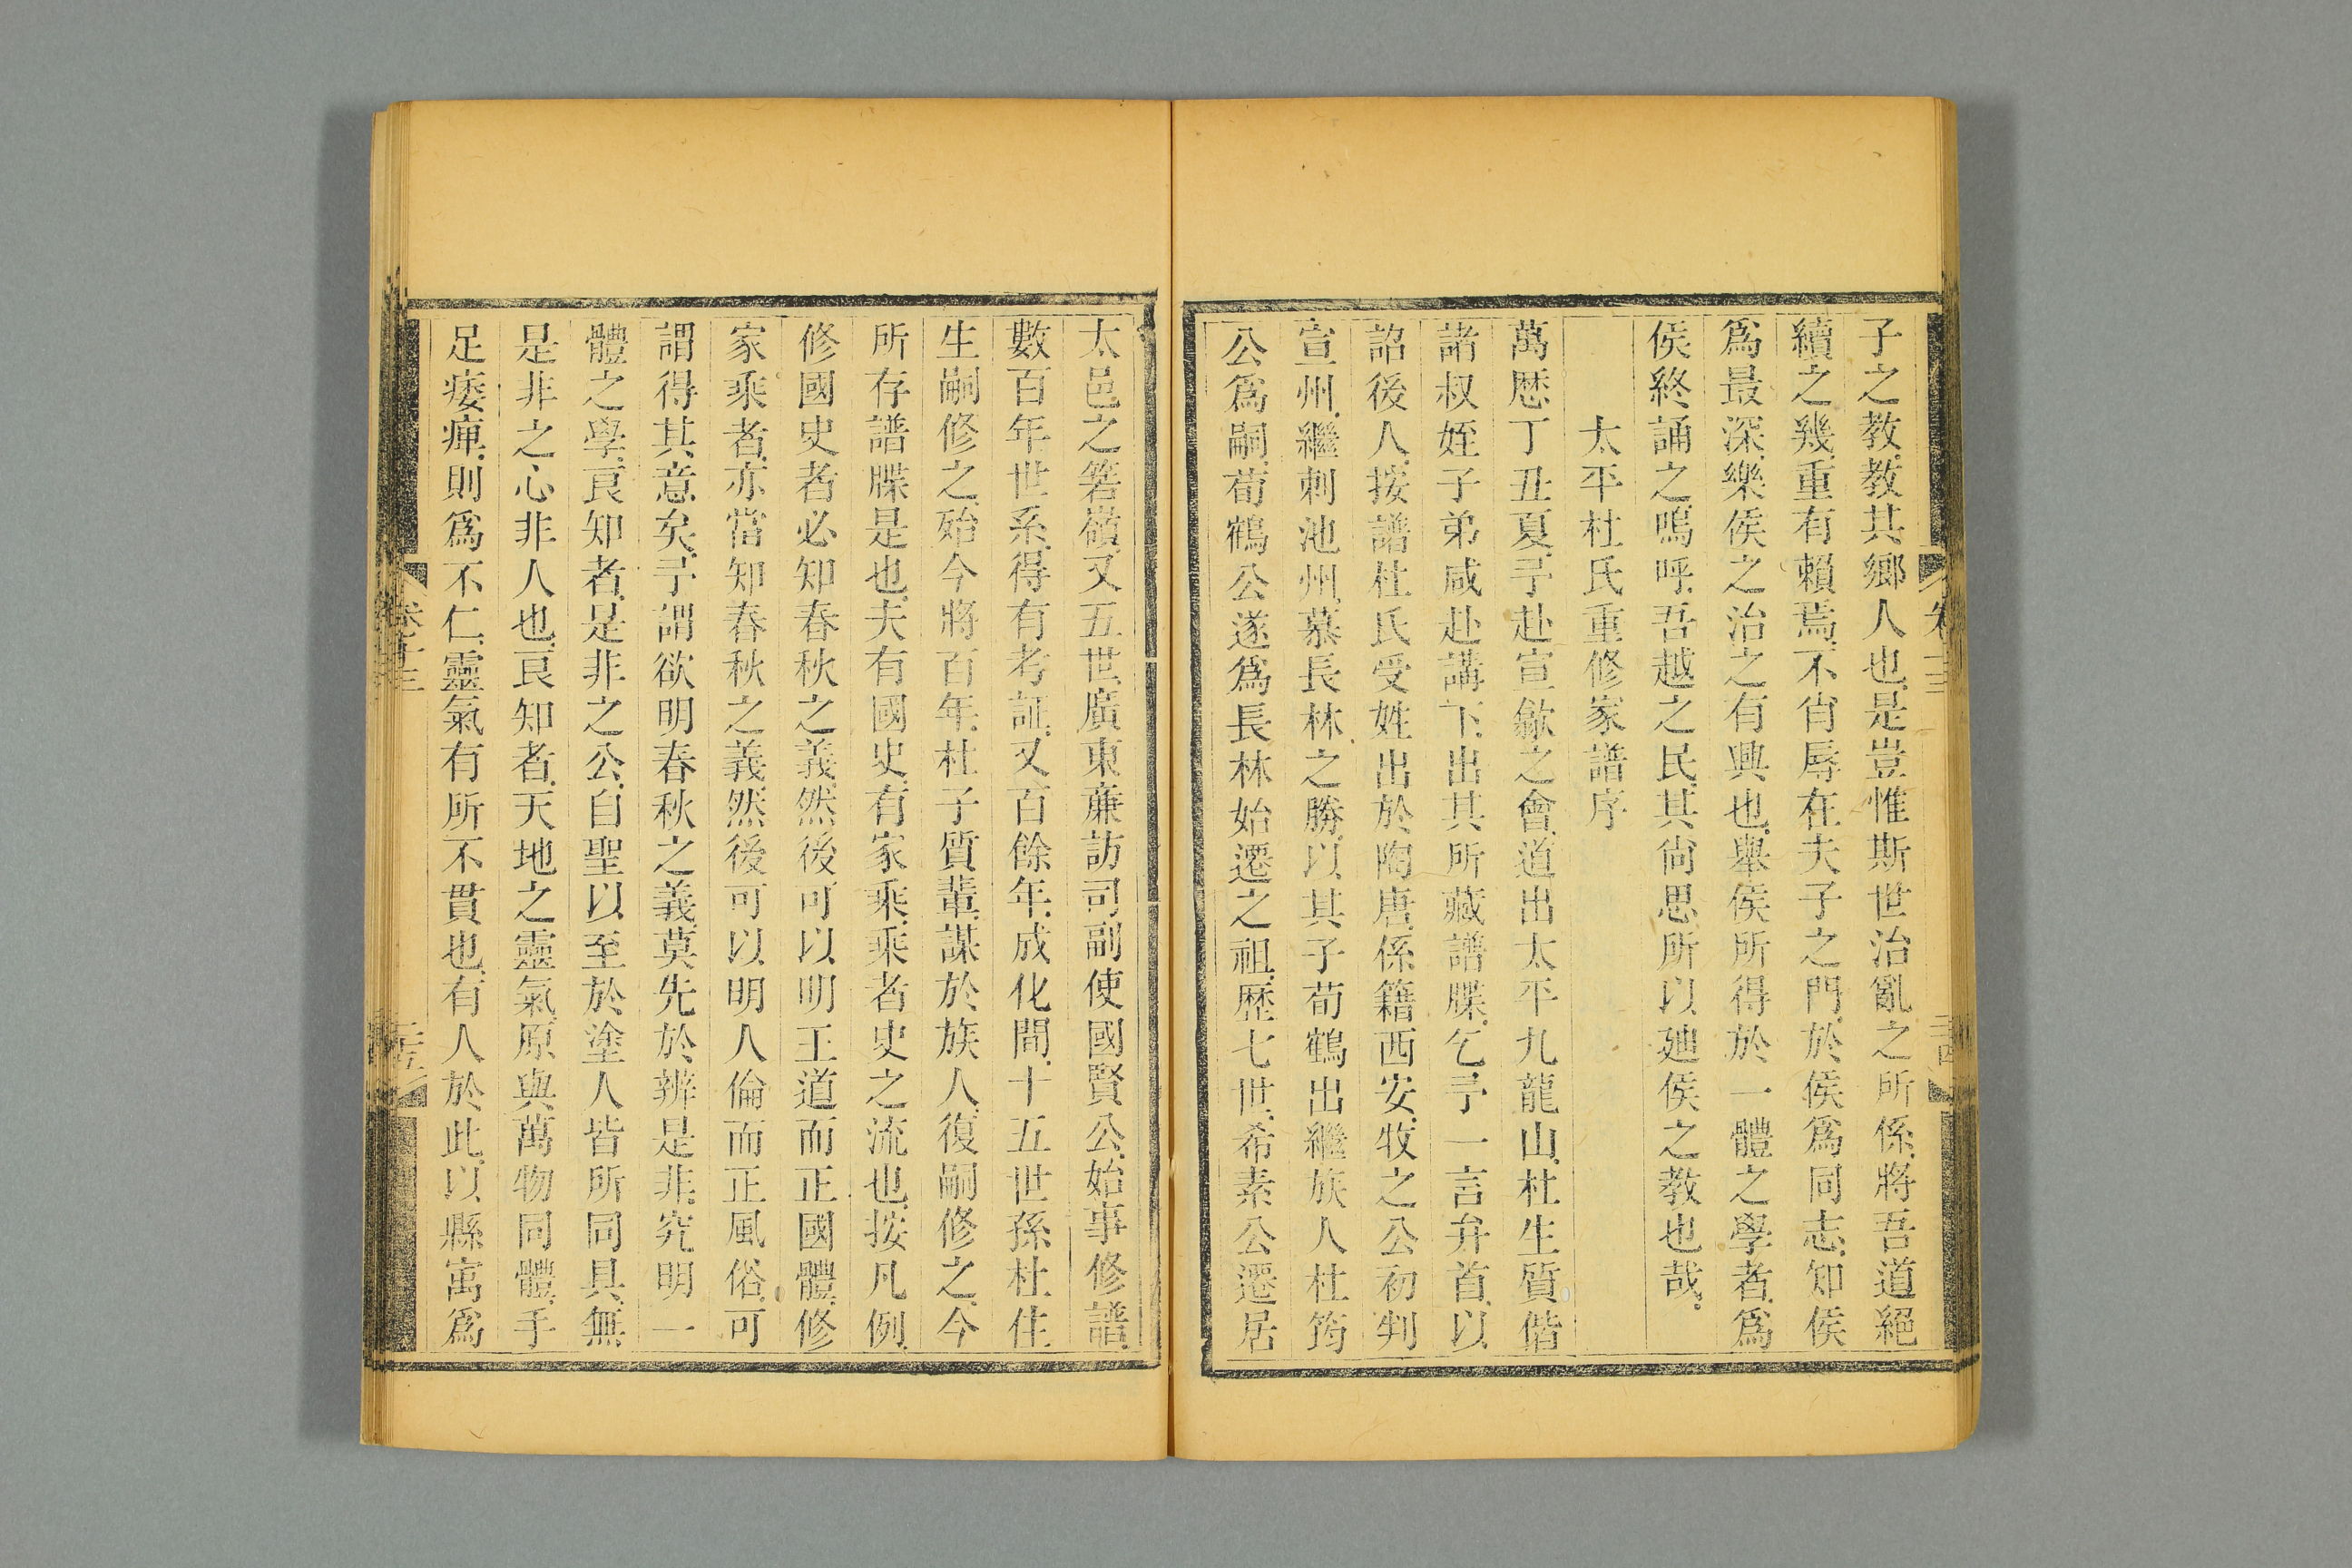 子之教教其鄉人也是豈惟斯世治亂之所係將吾道絕
續之幾重有賴焉不肖辱在夫子之門於侯爲同志知侯
爲最深樂侯之治之有興也舉侯所得於一體之學者爲
侯終誦之嗚呼吾越之民其尚思所以廸侯之教也哉
太平杜氏重修家譜序
萬歷丁丑夏予赴宣歙之會道出太平九龍山杜生質偕
諸叔姪子弟咸赴講下出其所藏譜牒乞予一言弁首以
詔後人按譜杜氏受姓出於陶唐係籍西安牧之公初判
宣州繼刺池州慕長林之勝以其子荀鶴出繼族人杜筠
公爲嗣荀鶴公遂爲長林始遷之祖歷七世希素公遷居
太邑之箬嶺又五世廣東亷訪司副使國賢公始事修譜
數百年世系得有考証又百餘年成化間十五世孫杜佳
生嗣修之殆今將百年杜子質輩謀於族人復嗣修之今
所存譜牒是也夫有國史有家乘乘者史之流也按凡例
修國史者必知春秋之義然後可以明王道而正國體修
家乘者亦當知春秋之義然後可以明人倫而正風俗可
謂得其意矣予謂欲明春秋之義莫先於辨是非究明一
體之學良知者是非之公自聖以至於塗人皆所同具無
是非之心非人也良知者天地之靈氣原與萬物同體手
足痿痺則爲不仁靈氣有所不貫也有人於此以縣㝢爲
卷十三
二十五